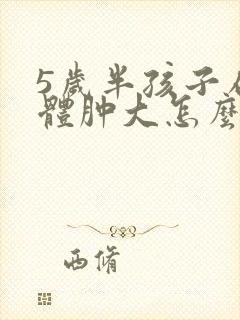 5歲半孩子
體肿大怎麼
西脩